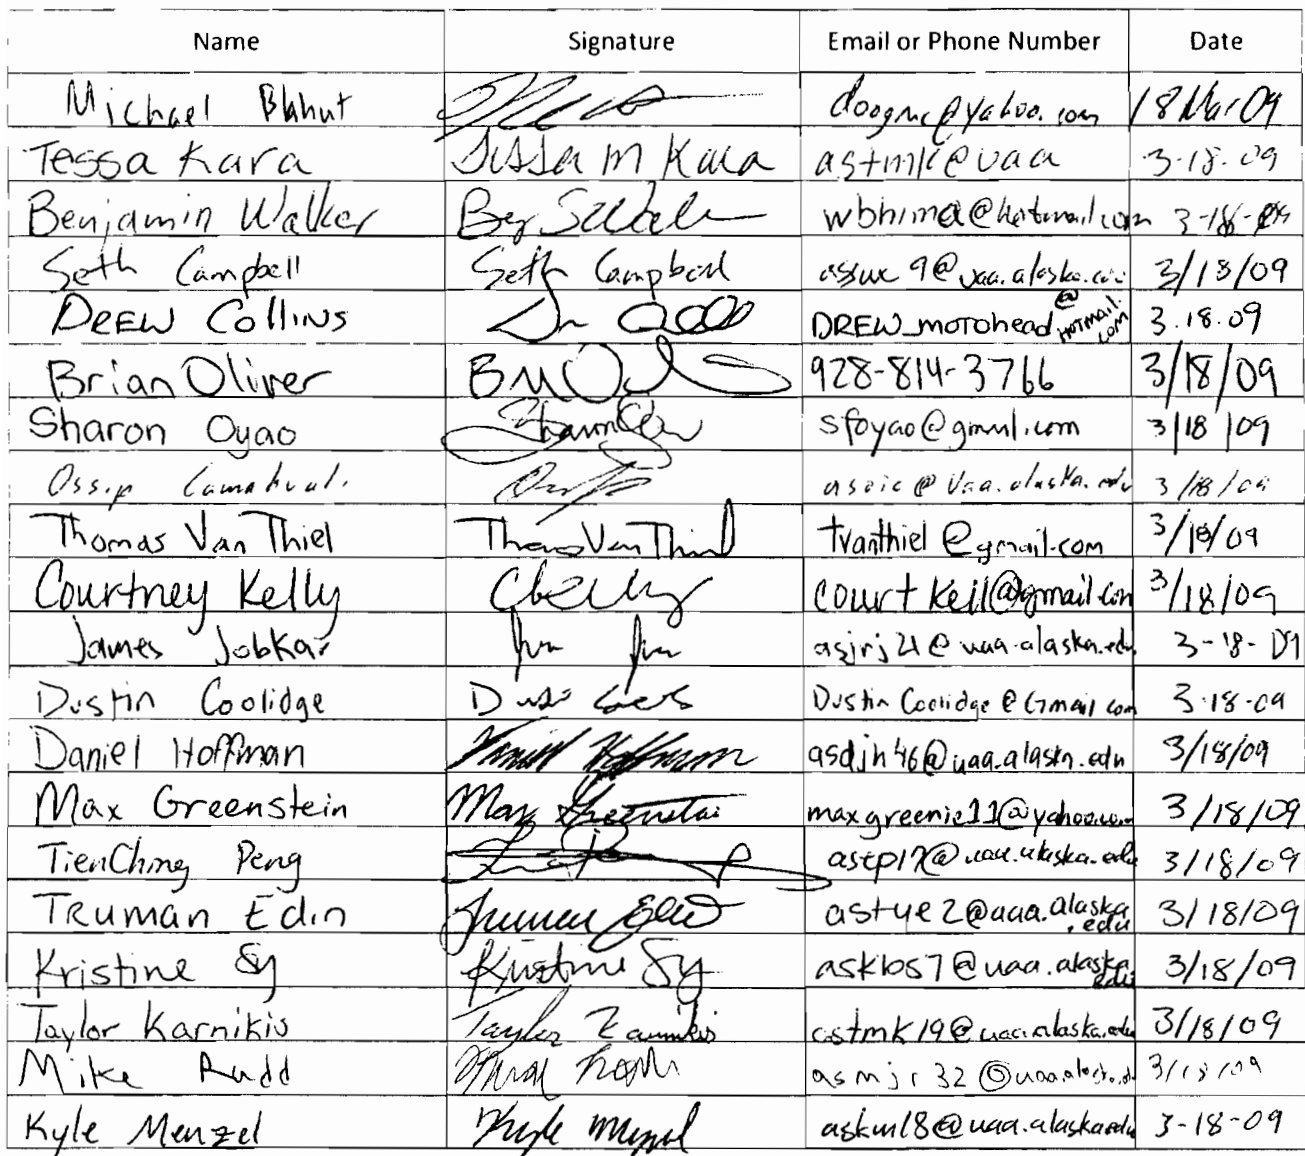 Name Signature Email or Phone Number Date
Michael doogmc@yahoo.com 18 Mar 09
Tessa Kara Tessa M Kara astmk@uaa 3-18-09
Benjamin Walker wbhima@hotmail.com 3-18-09
Seth Campbell Seth Campbell 3/18/09
DREW COLLINS DREW_MOTOHEAD@HOTMAIL.COM 3.18.09
Brian Oliver 928-814-3766 3/18/09
Sharon Oyao sfoyao@gmail.com 3/18/09
Ossip 3/18/09
Thomas Van Thiel Thomas Van Thiel tvanthiel@gmail.com 3/18/09
Courtney Kelly CKelly courtkell@gmail.com 3/18/09
James Jobkar asjrj21@uaa.alaska.edu 3-18-09
Dustin Coolidge DustinCoolidge@Gmail.com 3-18-09
Daniel Hoffman Daniel Hoffman asdjh46@uaa.alaska.edu 3/18/09
Max Greenstein Max Greenstein maxgreenie11@yahoo.com 3/18/09
TienChing Peng astp17@uaa.alaska.edu 3/18/09
TRUMAN Edin Truman Edin astye2@uaa.alaska.edu 3/18/09
Kristine Sy Kristine Sy askbs7@uaa.alaska.edu 3/18/09
Taylor Karnikis Taylor Karnikis astmk19@uaa.alaska.edu 3/18/09
Mike Rudd asmjr32@uaa.alaska.edu 3/18/09
Kyle Menzel Kyle Menzel askm18@uaa.alaska.edu 3-18-09